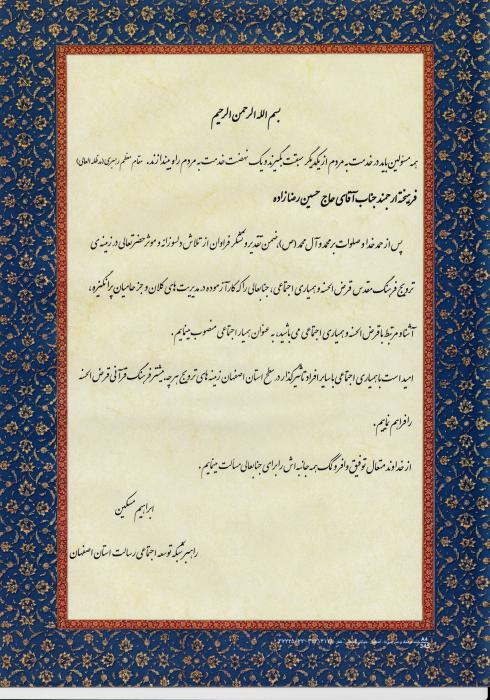 بسم الله الرحمن الرحیم
همه مسئولین باید در خدمت به مردم از یکدیگر سبقت بگیرند و یک نهضت خدمت به مردم راه بیندازند. مقام معظم رهبری (مدظله العالی)
فرهیخته ارجمند جناب آقای حاج حسین رضازاده
پس از حمد خدا و صلوات بر محمد و آل محمد (ص)، ضمن تقدیر و تشکر فراوان از تلاش دلسوزانه و موثر حضرتعالی در زمینه‌ی
ترویج فرهنگ مقدس قرض الحسنه و همیاری اجتماعی، جنابعالی را که کارآزموده در مدیریت های کلان و جز حامیان پرانگیزه،
آشنا و مرتبط با قرض الحسنه و همیاری اجتماعی می باشید، به عنوان همیار اجتماعی منصوب مینمایم.
امید است با همیاری اجتماعی با سایر افراد تاثیرگذار در سطح استان اصفهان زمینه های ترویج هرچه بیشتر فرهنگ قرآنی قرض الحسنه
را فراهم نماییم.
از خداوند متعال توفیق وافر و کمک همه جانبه اش را برای جنابعالی مسالت مینمایم.
ابراهیم مسکین
راهبر شبکه توسعه اجتماعی رسالت استان اصفهان